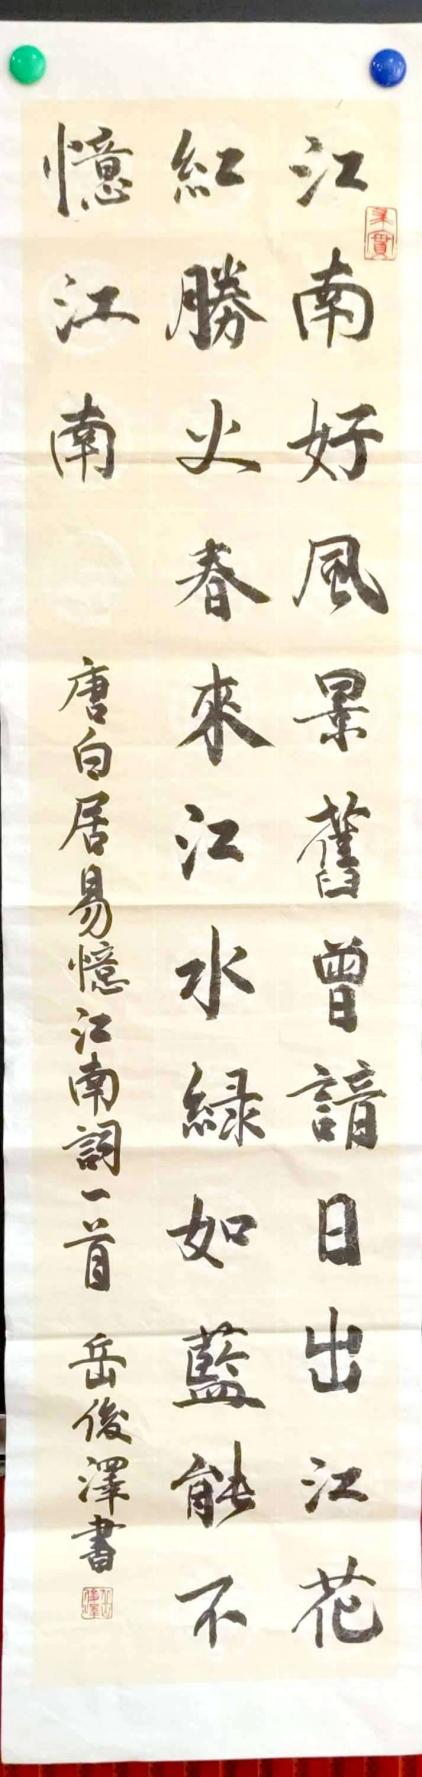 江南好風景舊曾諳日出江花
紅勝火春來江水緑如藍能不
憶江南
唐白居易憶江南詞一首 岳俊澤書